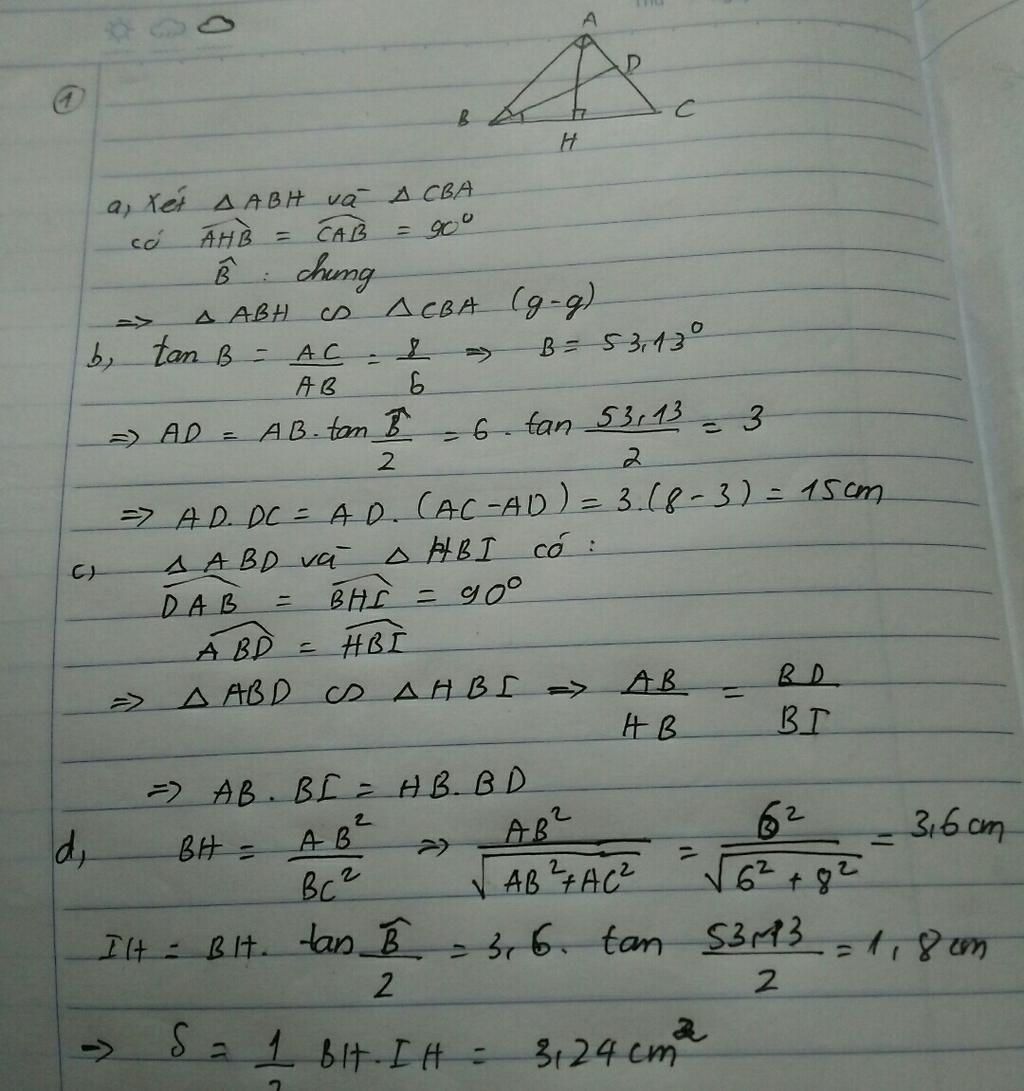 ①
A
D
B
C
H
a, Xét Δ ABH và Δ CBA
có \widehat{AHB} = \widehat{CAB} = 90°
\hat{B} : chung
=> Δ ABH ∽ Δ CBA (g-g)
b, tan B = AC/AB = 8/6 => B = 53,13°
=> AD = AB. tan \hat{B}/2 = 6. tan 53,13/2 = 3
=> AD. DC = AD. (AC-AD) = 3.(8-3) = 15 cm
c, Δ ABD và Δ HBI có :
\widehat{DAB} = \widehat{BHI} = 90°
\widehat{ABD} = \widehat{HBI}
=> Δ ABD ∽ Δ HBI => AB/HB = BD/BI
=> AB. BI = HB. BD
d, BH = AB²/BC² => AB²/√(AB²+AC²) = 6²/√(6²+8²) = 3,6 cm
IH = BH. tan \hat{B}/2 = 3,6. tan 53,13/2 = 1,8 cm
=> S = 1/2 BH. IH = 3,24 cm²